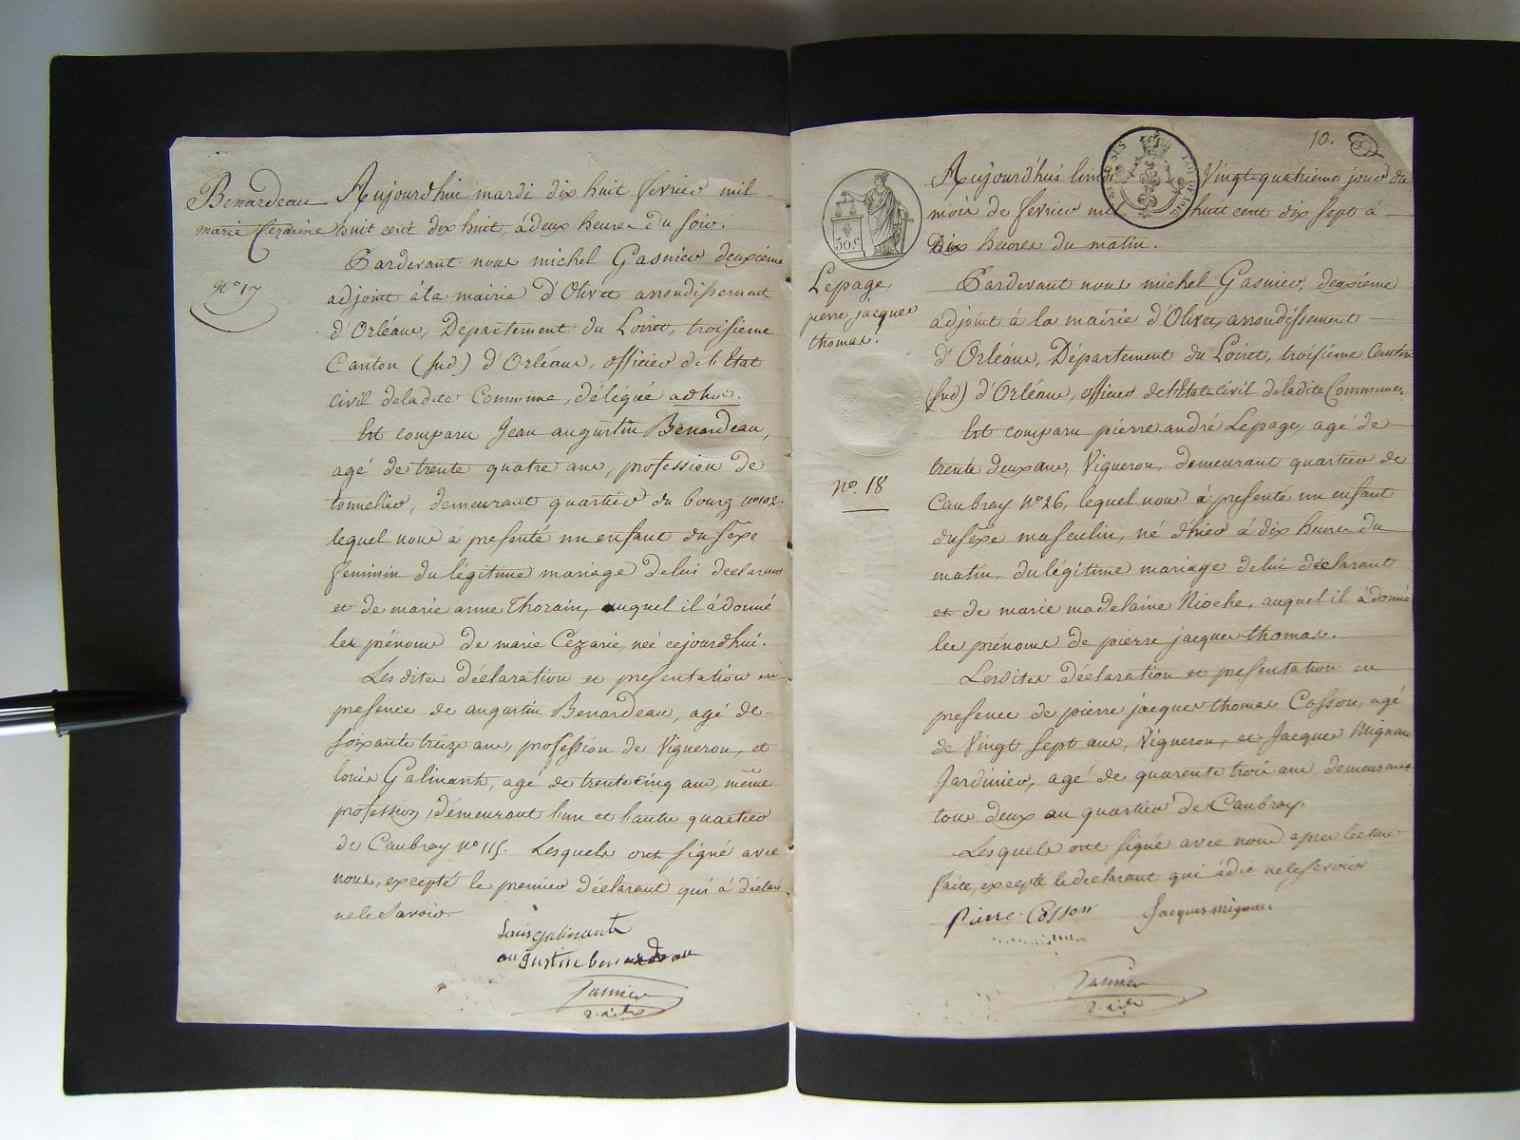 Benardeau
marie Cezarine
n° 17
Aujourdhui mardi dix huit fevrier mil
huit cent dix huit, à deux heures du soir.
Pardevant nous michel Gasnier deuxième
adjoint à la mairie d'Olivet arrondissement
d'Orléans, Département du Loiret, troisième
Canton (sud) d'Orléans, officier de l'Etat
civil deladite Commune, délégué adhoc.
Est comparu Jean augustin Benardeau,
agé de trente quatre ans, profession de
tonnelier, demeurant quartier du bourg n° 102.
lequel nous a presenté un enfant du sexe
feminin du légitime mariage de lui declarant
et de marie anne Thorain, auquel il à donné
les prénoms de marie Cézarie, neé cejourdhui.
Lesdites déclaration et presentation en
presence de augustin Benardeau, agé de
soixante treize ans, profession de Vigneron, et
louis Galinant, agé de trente cinq ans, même
profession, demeurant l'un et l'autre quartier
de Caubray n° 115. Lesquels ont signé avec
nous, excepté le premier déclarant qui à déclaré
ne le savoir
Louis galinant
augustin benardeau
Gasnier
2. adjt
10.
Aujourd'hui lundi Vingt quatrieme jour du
mois de fevrier mil huit cent dix sept à
Dix heures du matin.
50 c
Lepage
pierre jacques
thomas.
n°. 18
Pardevant nous michel Gasnier, deuxième
adjoint à la mairie d'Olivet, arrondissement
d'Orléans, Département du Loiret, troisième Canton
(sud) d'Orléans, officier de l'Etat Civil de ladite Commune.
Est comparu pierre andré Lepage, agé de
trente deux ans, Vigneron, demeurant quartier de
Caubray N° 26, lequel nous à presenté un enfant
du sexe masculin, né d'hier à dix heures du
matin, du légitime mariage de lui déclarant
et de marie madelaine Rioche, auquel il à donné
les prénoms de pierre jacques thomas.
Lesdites déclaration et presentation en
presence de pierre jacques thomas Cosson, agé
de Vingt sept ans, Vigneron, et Jacques Mignan
Jardinier, agé de quarente trois ans demeurant
tous deux au quartier de Caubray.
Lesquels ont signé avec nous apres lecture
faite, excepté le declarant qui à dit ne le savoir
Pierre Cosson Jacques mignan
Gasnier
2. adjt